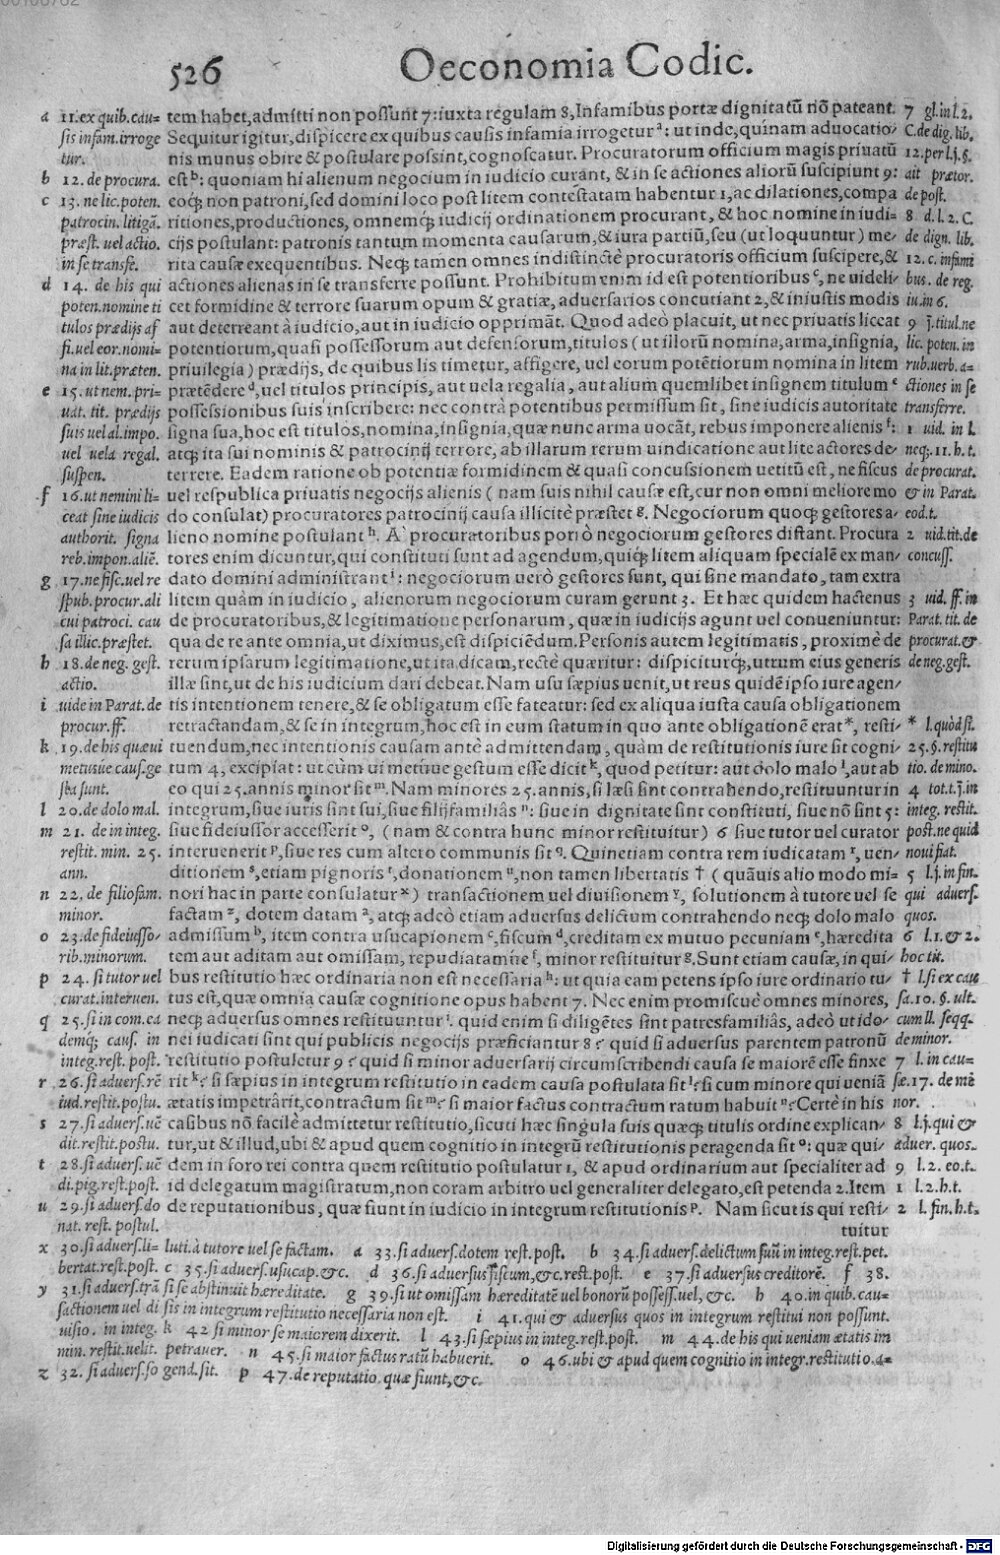 526
Oeconomia Codic.
tem habet, admitti non possunt 7: iuxta regulam 8, Infamibus portæ dignitatũ nõ pateant.
Sequitur igitur, dispicere ex quibus causis infamia irrogetur ª: ut inde, quinam aduocatio-
nis munus obire & postulare possint, cognoscatur. Procuratorum officium magis priuatũ
est ᵇ: quoniam hi alienum negocium in iudicio curant, & in se actiones aliorũ suscipiunt 9:
eoq́; non patroni, sed domini loco post litem contestatam habentur 1, ac dilationes, compa
ritiones, productiones, omnemq́; iudicij ordinationem procurant, & hoc nomine in iudi-
cijs postulant: patronis tantum momenta causarum, & iura partiũ, seu (ut loquuntur) me-
rita causæ exequentibus. Neq́; tamen omnes indistinctè procuratoris officium suscipere, &
actiones alienas in se transferre possunt. Prohibitum enim id est potentioribus ᶜ, ne uideli
cet formidine & terrore suarum opum & gratiæ, aduersarios concutiant 2, & iniustis modis
aut deterreant à iudicio, aut in iudicio opprimãt. Quod adeò placuit, ut nec priuatis liceat
potentiorum, quasi possessorum aut defensorum, titulos (ut illorũ nomina, arma, insignia,
priuilegia) prædijs, de quibus lis timetur, affigere, uel eorum potẽtiorum nomina in litem
prætẽdere ᵈ, uel titulos principis, aut uela regalia, aut alium quemlibet insignem titulum ᵉ
possessionibus suis inscribere: nec contrà potentibus permissum sit, sine iudicis autoritate
signa sua, hoc est titulos, nomina, insignia, quæ nunc arma uocãt, rebus imponere alienis ᶠ:
atq́; ita sui nominis & patrocinij terrore, ab illarum rerum uindicatione aut lite actores de-
terrere. Eadem ratione ob potentiæ formidinem & quasi concussionem uetitũ est, ne fiscus
uel respublica priuatis negocijs alienis (nam suis nihil causæ est, cur non omni meliore mo
do consulat) procuratores patrocinij causa illicitè præstet ᵍ. Negociorum quoq́; gestores a-
lieno nomine postulant ʰ. A procuratoribus porrò negociorum gestores distant. Procura
tores enim dicuntur, qui constituti sunt ad agendum, quiq́; litem aliquam specialẽ ex man-
dato domini administrant ⁱ: negociorum uerò gestores sunt, qui sine mandato, tam extra
litem quàm in iudicio, alienorum negociorum curam gerunt 3. Et hæc quidem hactenus
de procuratoribus, & legitimatione personarum, quæ in iudicijs agunt uel conueniuntur:
qua de re ante omnia, ut diximus, est dispiciẽdum. Personis autem legitimatis, proximè de
rerum ipsarum legitimatione, ut ita dicam, rectè quæritur: dispiciturq́;, utrum eius generis
illæ sint, ut de his iudicium dari debeat. Nam usu sæpius uenit, ut reus quidẽ ipso iure agen-
tis intentionem tenere, & se obligatum esse fateatur: sed ex aliqua iusta causa obligationem
retractandam, & se in integrum, hoc est in eum statum in quo ante obligationẽ erat*, resti-
tuendum, nec intentionis causam antè admittendam, quàm de restitutionis iure sit cogni-
tum 4, excipiat: ut cùm ui metúue gestum esse dicit ᵏ, quod petitur: aut dolo malo ˡ, aut ab
eo qui 25. annis minor sit ᵐ. Nam minores 25. annis, si læsi sint contrahendo, restituuntur in
integrum, siue iuris sint sui, siue filijfamiliâs ⁿ: siue in dignitate sint constituti, siue nõ sint 5:
siue fideiussor accesserit ᵒ, (nam & contra hunc minor restituitur) 6 siue tutor uel curator
interuenerit ᵖ, siue res cum altero communis sit q. Quinetiam contra rem iudicatam ʳ, uen-
ditionem ˢ, etiam pignoris ᵗ, donationem ᵘ, non tamen libertatis † (quãuis alio modo mi-
nori hac in parte consulatur ˣ) transactionem uel diuisionem ʸ, solutionem à tutore uel se
factam ᶻ, dotem datam ª, atq́; adeò etiam aduersus delictum contrahendo neq́; dolo malo
admissum ᵇ, item contra usucapionem ᶜ, fiscum ᵈ, creditam ex mutuo pecuniam ᵉ, hæredita
tem aut aditam aut omissam, repudiatamúe ᶠ, minor restituitur ᵍ. Sunt etiam causæ, in qui-
bus restitutio hæc ordinaria non est necessaria ʰ: ut quia eam petens ipso iure ordinario tu-
tus est, quæ omnia causæ cognitione opus habent 7. Nec enim promiscuè omnes minores,
neq́; aduersus omnes restituuntur ⁱ. quid enim si diligẽtes sint patresfamiliâs, adeò ut ido-
nei iudicati sint qui publicis negocijs præficiantur 8? quid si aduersus parentem patronũ
restitutio postuletur 9? quid si minor aduersarij circumscribendi causa se maiorẽ esse finxe
rit ᵏ? si sæpius in integrum restitutio in eadem causa postulata sit ˡ? si cum minore qui ueniã
ætatis impetrârit, contractum sit ᵐ? si maior factus contractum ratum habuit ⁿ? Certè in his
casibus nõ facilè admittetur restitutio, sicuti hæc singula suis quæq́; titulis ordine explican-
tur, ut & illud, ubi & apud quem cognitio in integrũ restitutionis peragenda sit ᵒ: quæ qui-
dem in foro rei contra quem restitutio postulatur 1, & apud ordinarium aut specialiter ad
id delegatum magistratum, non coram arbitro uel generaliter delegato, est petenda 2. Item
de reputationibus, quæ fiunt in iudicio in integrum restitutionis ᵖ. Nam sicut is qui resti-
tuitur
a 11. ex quib. cau-
sis infam. irroge
tur.
b 12. de procura.
c 13. ne lic. poten.
patrocin. litigã.
præst. uel actio.
in se transfe.
d 14. de his qui
poten. nomine ti
tulos prædijs af
fi. uel eor. nomi-
na in lit. præten.
e 15. ut nem. pri-
uat. tit. prædijs
suis uel al. impo.
uel uela regal.
suspen.
f 16. ut nemini li-
ceat sine iudicis
authorit. signa
reb. impon. aliẽ.
g 17. ne fisc. uel re
spub. procur. ali
cui patroci. cau
sa illic. præstet.
h 18. de neg. gest.
actio.
i uide in Parat. de
procur. ff.
k 19. de his quæ ui
metusue caus. ge
sta sunt.
l 20. de dolo mal.
m 21. de in integ.
restit. min. 25.
ann.
n 22. de filiofam.
minor.
o 23. de fideiusso-
rib. minorum.
p 24. si tutor uel
curat. interuen.
q 25. si in com. ea
demq́; caus. in
integ. rest. post.
r 26. si aduers. rẽ
iud. restit. postu.
s 27. si aduers. uẽ
dit. restit. postu.
t 28. si aduers. uẽ
di. pig. rest. post.
u 29. si aduers. do
nat. rest. postul.
x 30. si aduers. li-
bertat. rest. post.
y 31. si aduers. trã
sactionem uel di
uisio. in integ.
min. restit. uelit.
z 32. si aduers. so
luti. à tutore uel se factam. a 33. si aduers. dotem rest. post. b 34. si aduers. delictum suũ in integ. rest. pet.
c 35. si aduers. usucap. &c. d 36. si aduersus fiscum, &c. rest. post. e 37. si aduersus creditorẽ. f 38.
si se abstinuit hæreditate. g 39. si ut omissam hæreditatẽ uel bonorũ possess. uel, &c. h 40. in quib. cau-
sis in integrum restitutio necessaria non est. i 41. qui & aduersus quos in integrum restitui non possunt.
k 42 si minor se maiorem dixerit. l 43. si sæpius in integ. rest. post. m 44. de his qui ueniam ætatis im
petrauer. n 45. si maior factus ratũ habuerit. o 46. ubi & apud quem cognitio in integr. restitutio. a-
gend. sit. p 47. de reputatio. quæ fiunt, &c.
7 gl. in l. 2.
C. de dig. lib.
12. per l. j. §.
ait prætor.
de post.
8 d. l. 2. C.
de dign. lib.
12. c. infami
bus. de reg.
iu. in 6.
9 j. titul. ne
lic. poten. in
rub. uerb. a-
ctiones in se
transferre.
1 uid. in l.
neq́;. 11. h. t.
de procurat.
& in Parat.
eod. t.
2 uid. tit. de
concuss.
3 uid. ff. in
Parat. tit. de
procurat. &
de neg. gest.
* l. quòd si.
25. §. restitu
tio. de mino.
4 tot. t. j. in
integ. restit.
post. ne quid
noui fiat.
5 l. j. in fin.
qui aduers.
quos.
6 l. 1. & 2.
hoc tit.
† l. si ex cau
sa. 10. §. ult.
cum ll. seqq.
de minor.
7 l. in cau-
sæ. 17. de mi
nor.
8 l. j. qui &
aduer. quos.
9 l. 2. eo. t.
1 l. 2. h. t.
2 l. fin. h. t.
Digitalisierung gefördert durch die Deutsche Forschungsgemeinschaft - DFG